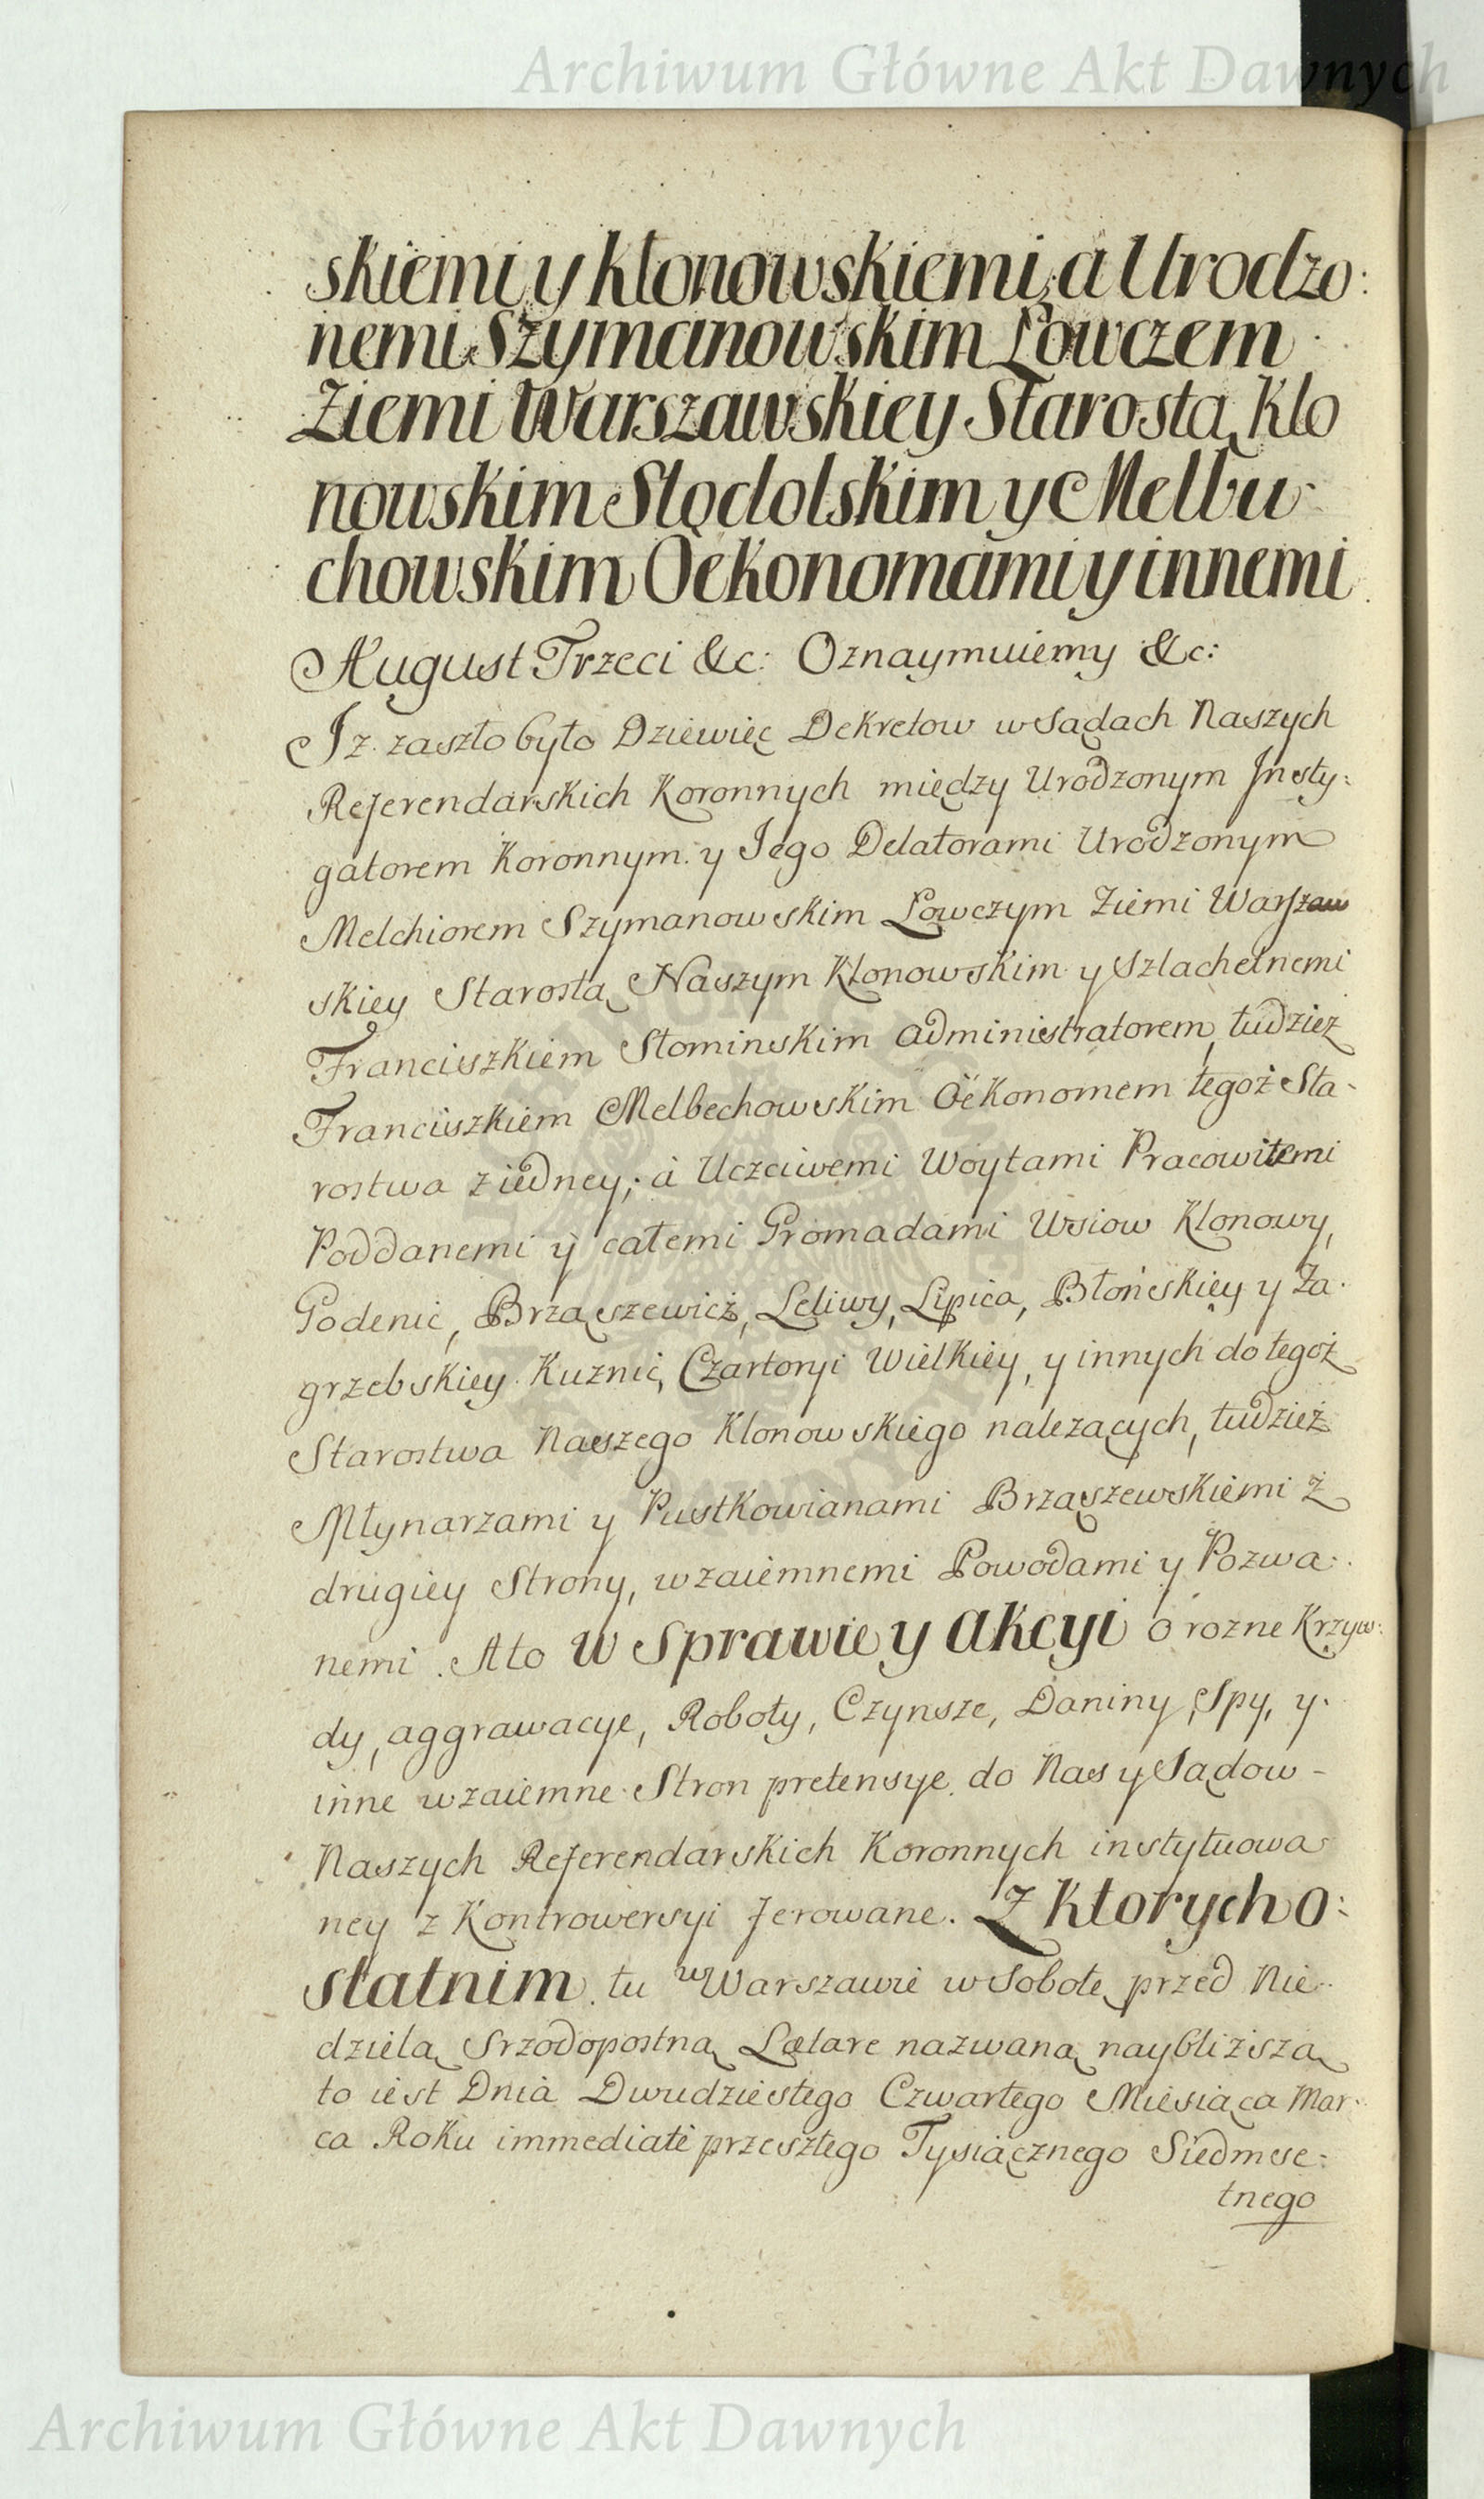 Archiwum Główne Akt Dawnych
skiemi y Klonowskiemi, a Urodzo:
nemi Szymanowskim Łowczem
Ziemi Warszawskiey Starostą Klo
nowskim Stodolskim y Melbu
chowskim Oekonomami y innemi
August Trzeci &c: Oznaymuiemy &c:
Iz zaszło było Dziewięc Dekretow w Sądach Naszych
Referendarskich Koronnych między Urodzonym Insty:
gatorem Koronnym y Iego Delatorami Urodzonym
Melchiorem Szymanowskim Łowczym Ziemi Warszaw
skiey Starostą Naszym Klonowskim y Szlachetnemi
Franciszkiem Słominskim Administratorem, tudziez
Franciszkiem Melbechowskim Oekonomem tegoż Sta-
rostwa z iedney; a Uczciwemi Woytami Pracowitemi
Poddanemi y całemi Gromadami Wsiow Klonowy,
Godenic, Brząszewicz, Leliwy, Lipica, Błońskiey y Za-
grzebskiey Kuznic, Czartoryi Wielkiey, y innych do tegoż
Starostwa Naszego Klonowskiego nalezących, tudzież
Młynarzami y Pustkowianami Brząszewskiemi z
drugiey Strony, wzaiemnemi Powodami y Pozwa-
nemi. A to w Sprawie y Akcyi o rozne Krzyw:
dy, aggrawacye, Roboty, Czynsze, Daniny, Spy, y
inne wzaiemne Stron pretensye do Nas y Sądow-
Naszych Referendarskich Koronnych instytuowa
ney z Kontrowersyi ferowane. Z ktorych o:
statnim tu w Warszawie w Sobotę przed Nie-
dzielą Srzodopostną Lætare nazwaną naybliższą
to iest Dnia Dwudziestego Czwartego Miesiąca Mar-
ca Roku immediate przeszłego Tysiącznego Siedmse:
tnego
Archiwum Główne Akt Dawnych